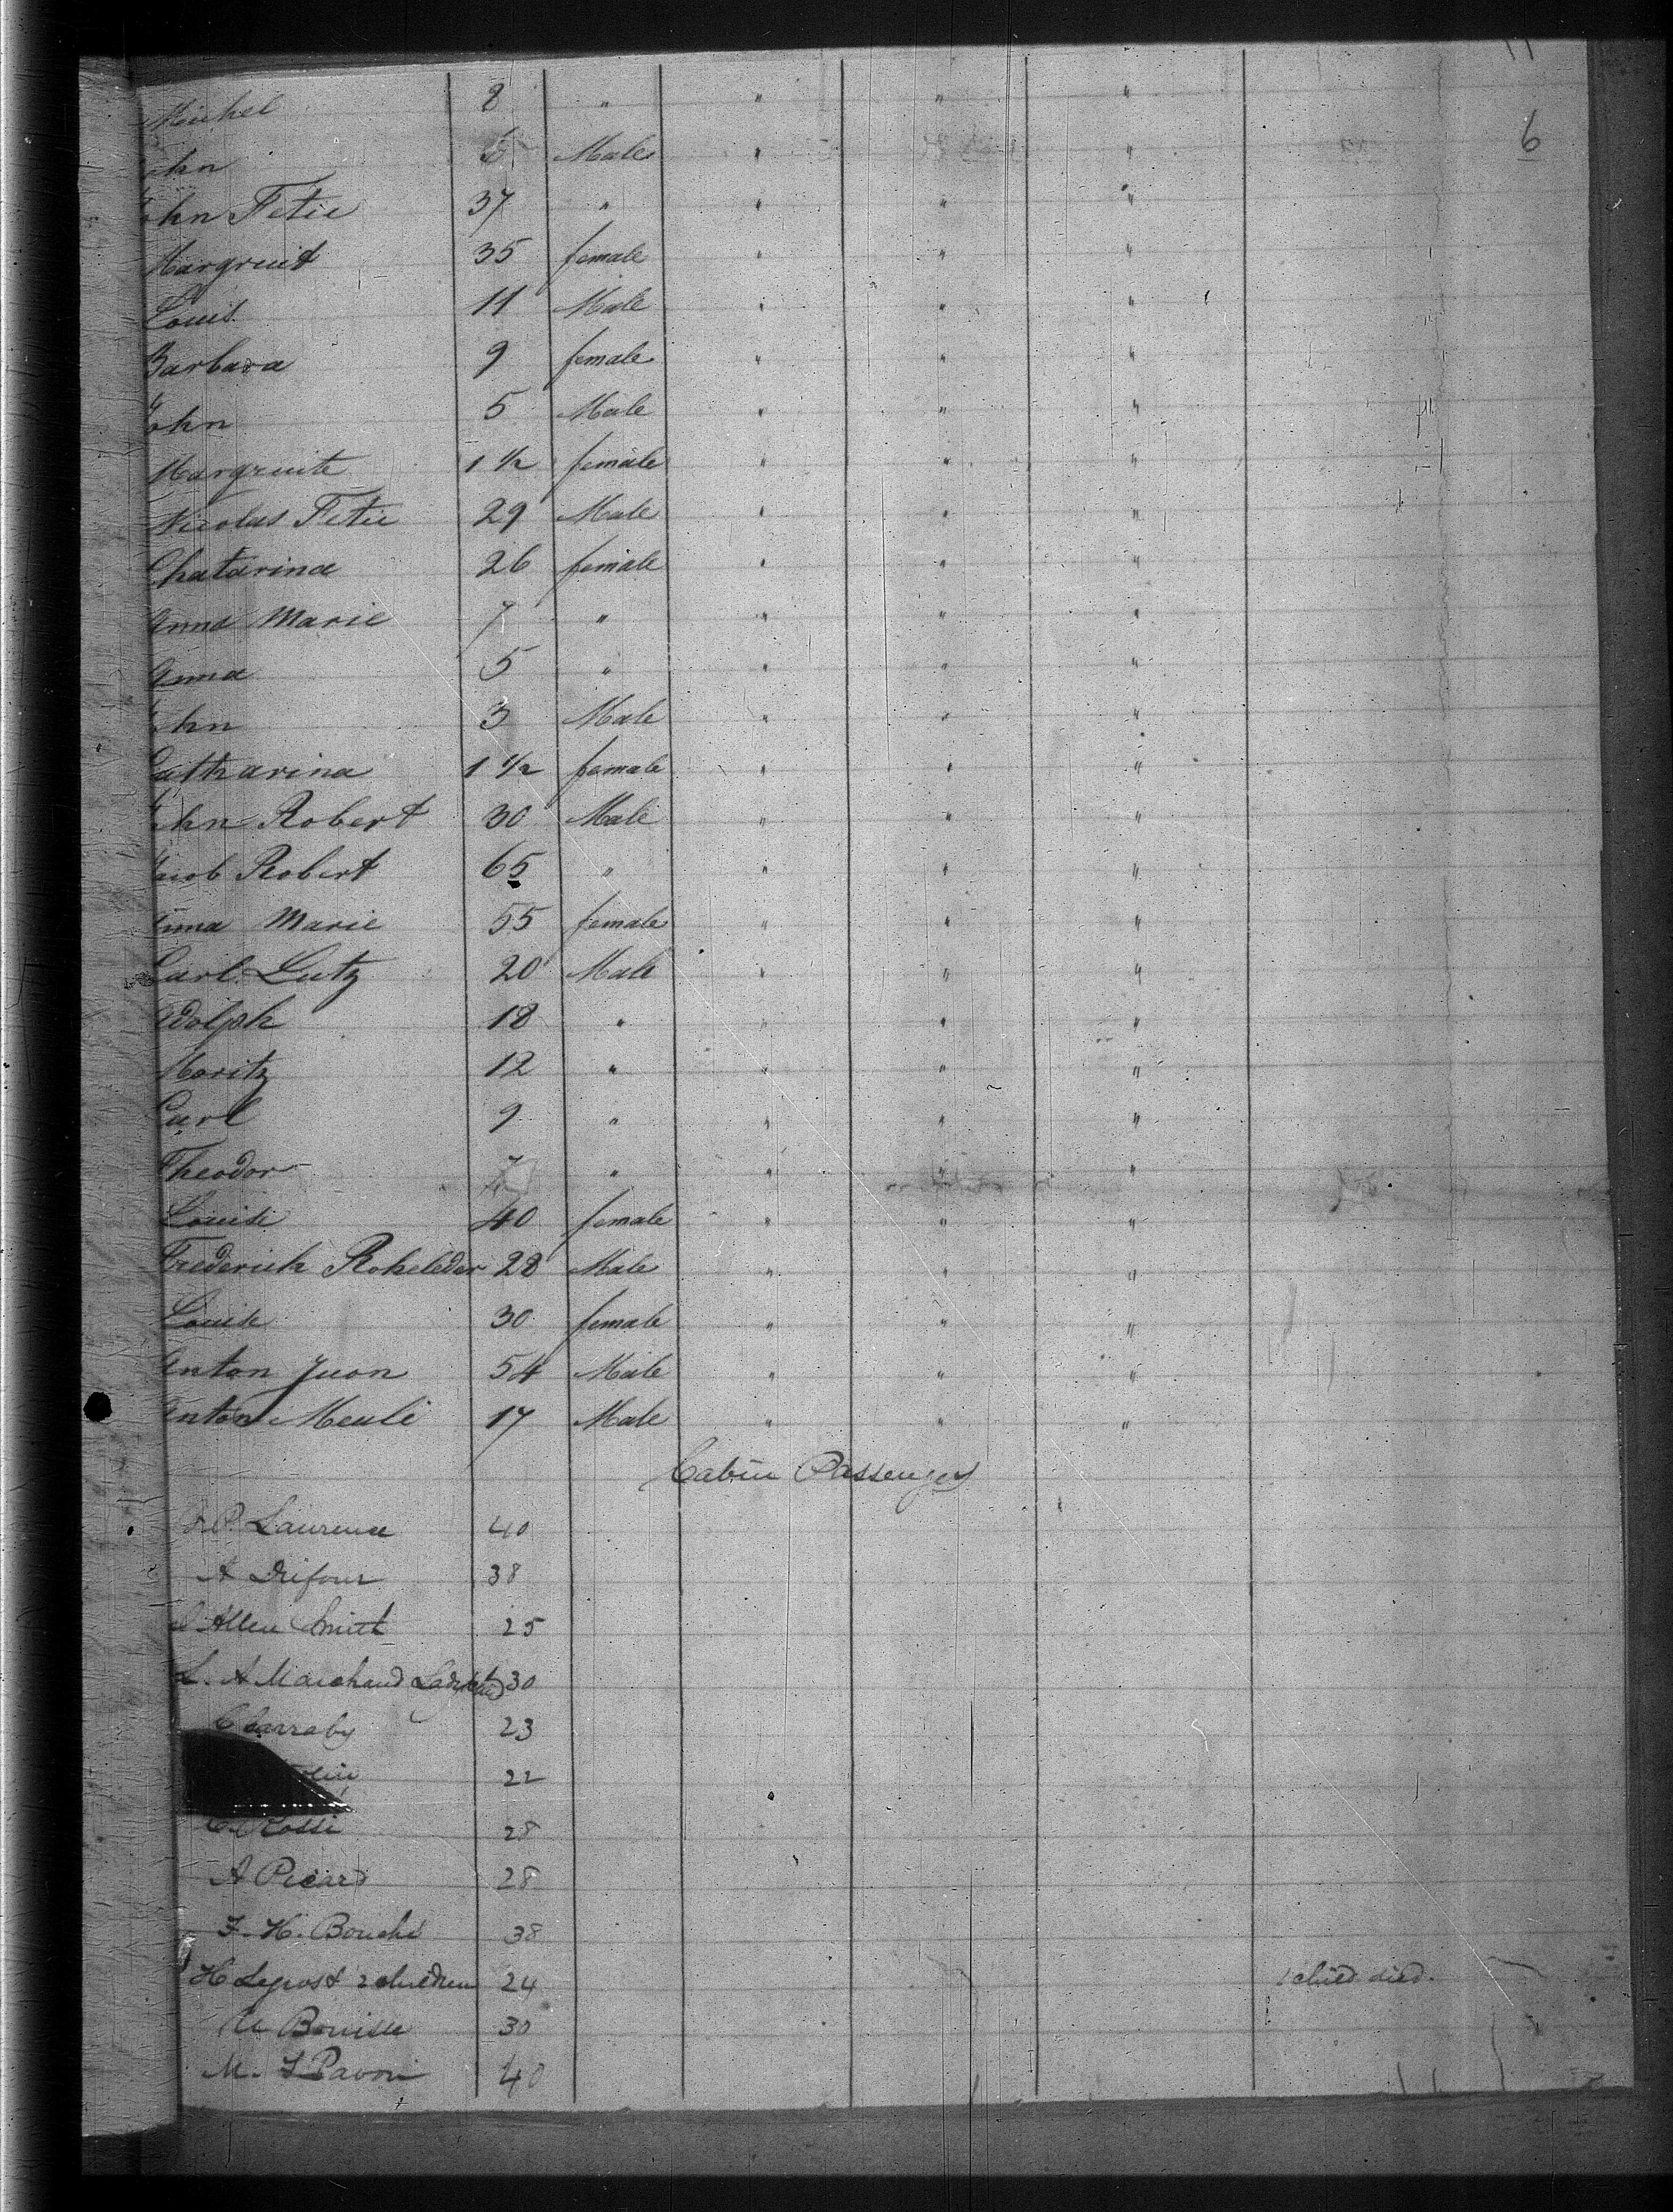 6
Michel 8 " " " "
ohn 6 Male " " "
ohn Fetie 37 " " " "
Margruit 35 female " " "
Louis 11 Male " " "
Barbara 9 female " " "
John 5 Male " " "
Margruite 1 1/2 female " " "
Nicolas Fetie 29 Male " " "
Chatarina 26 female " " "
Anna Marie 7 " " " "
Anna 5 " " " "
John 3 Male " " "
Catharina 1 1/2 female " " "
John Robert 30 Male " " "
Jacob Robert 65 " " " "
Anna Marie 55 female " " "
Carl Lutz 20 Male " " "
Adolph 18 " " " "
Moritz 12 " " " "
Carl 9 " " " "
Theodor " " " "
Louise 40 female " " "
Frederich Roheleder 28 Male " " "
Louise 30 female " " "
Anton Juon 54 Male " " "
Anton Meuli 17 Male " " "
Cabin Passenges
P. Laurence 40
A Drifour 38
Allen Smith 25
L. A Marchand Lady 30
Clarraby 23
22
C. Rossi 28
A Picard 28
F. H. Bouche 38
H Leprost 2 children 24 1 child died.
Bouisse 30
M. J Pavon 40